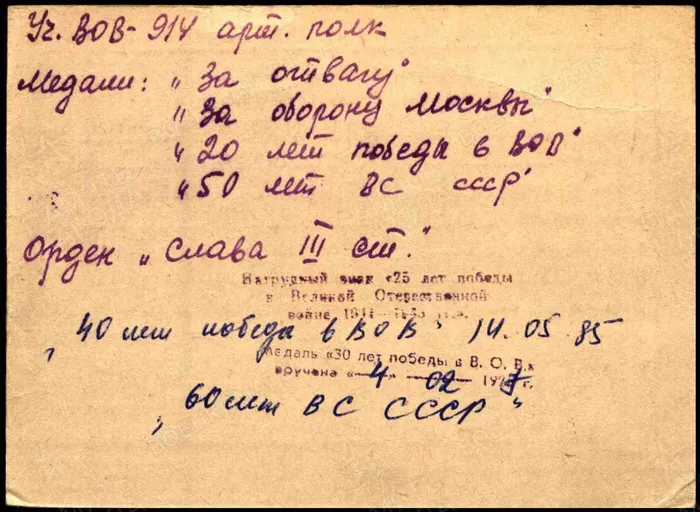 Уч. ВОВ - 914 арт. полк
Медали: "За отвагу"
"За оборону Москвы"
"20 лет победы в ВОВ"
"50 лет ВС СССР"
Орден "Слава III ст."
Нагрудный знак «25 лет победы
в Великой Отечественной
войне 1941—1945 гг.».
"40 лет победа в ВОВ" 14.05.85
Медаль «30 лет победы в В. О. В.»
вручена «4» 02 197 г.
"60 лет ВС СССР"